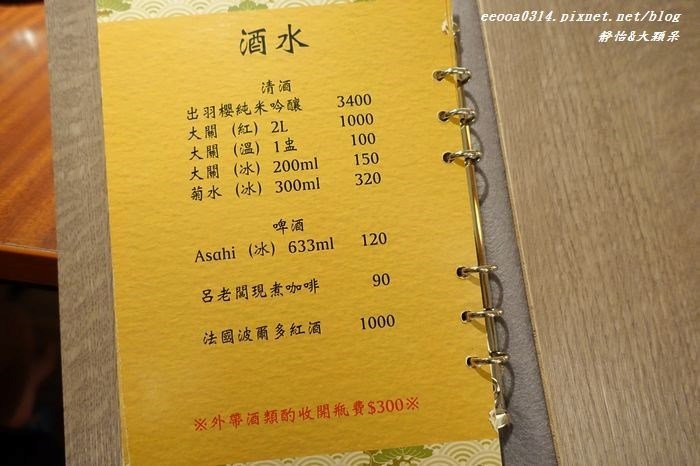 eeooa0314.pixnet.net/blog
靜怡&大顆呆
酒水
清酒
出羽櫻純米吟釀 3400
大關 (紅) 2L 1000
大關 (溫) 1盅 100
大關 (冰) 200ml 150
菊水 (冰) 300ml 320
啤酒
Asahi (冰) 633ml 120
呂老闆現煮咖啡 90
法國波爾多紅酒 1000
※外帶酒類酌收開瓶費$300※